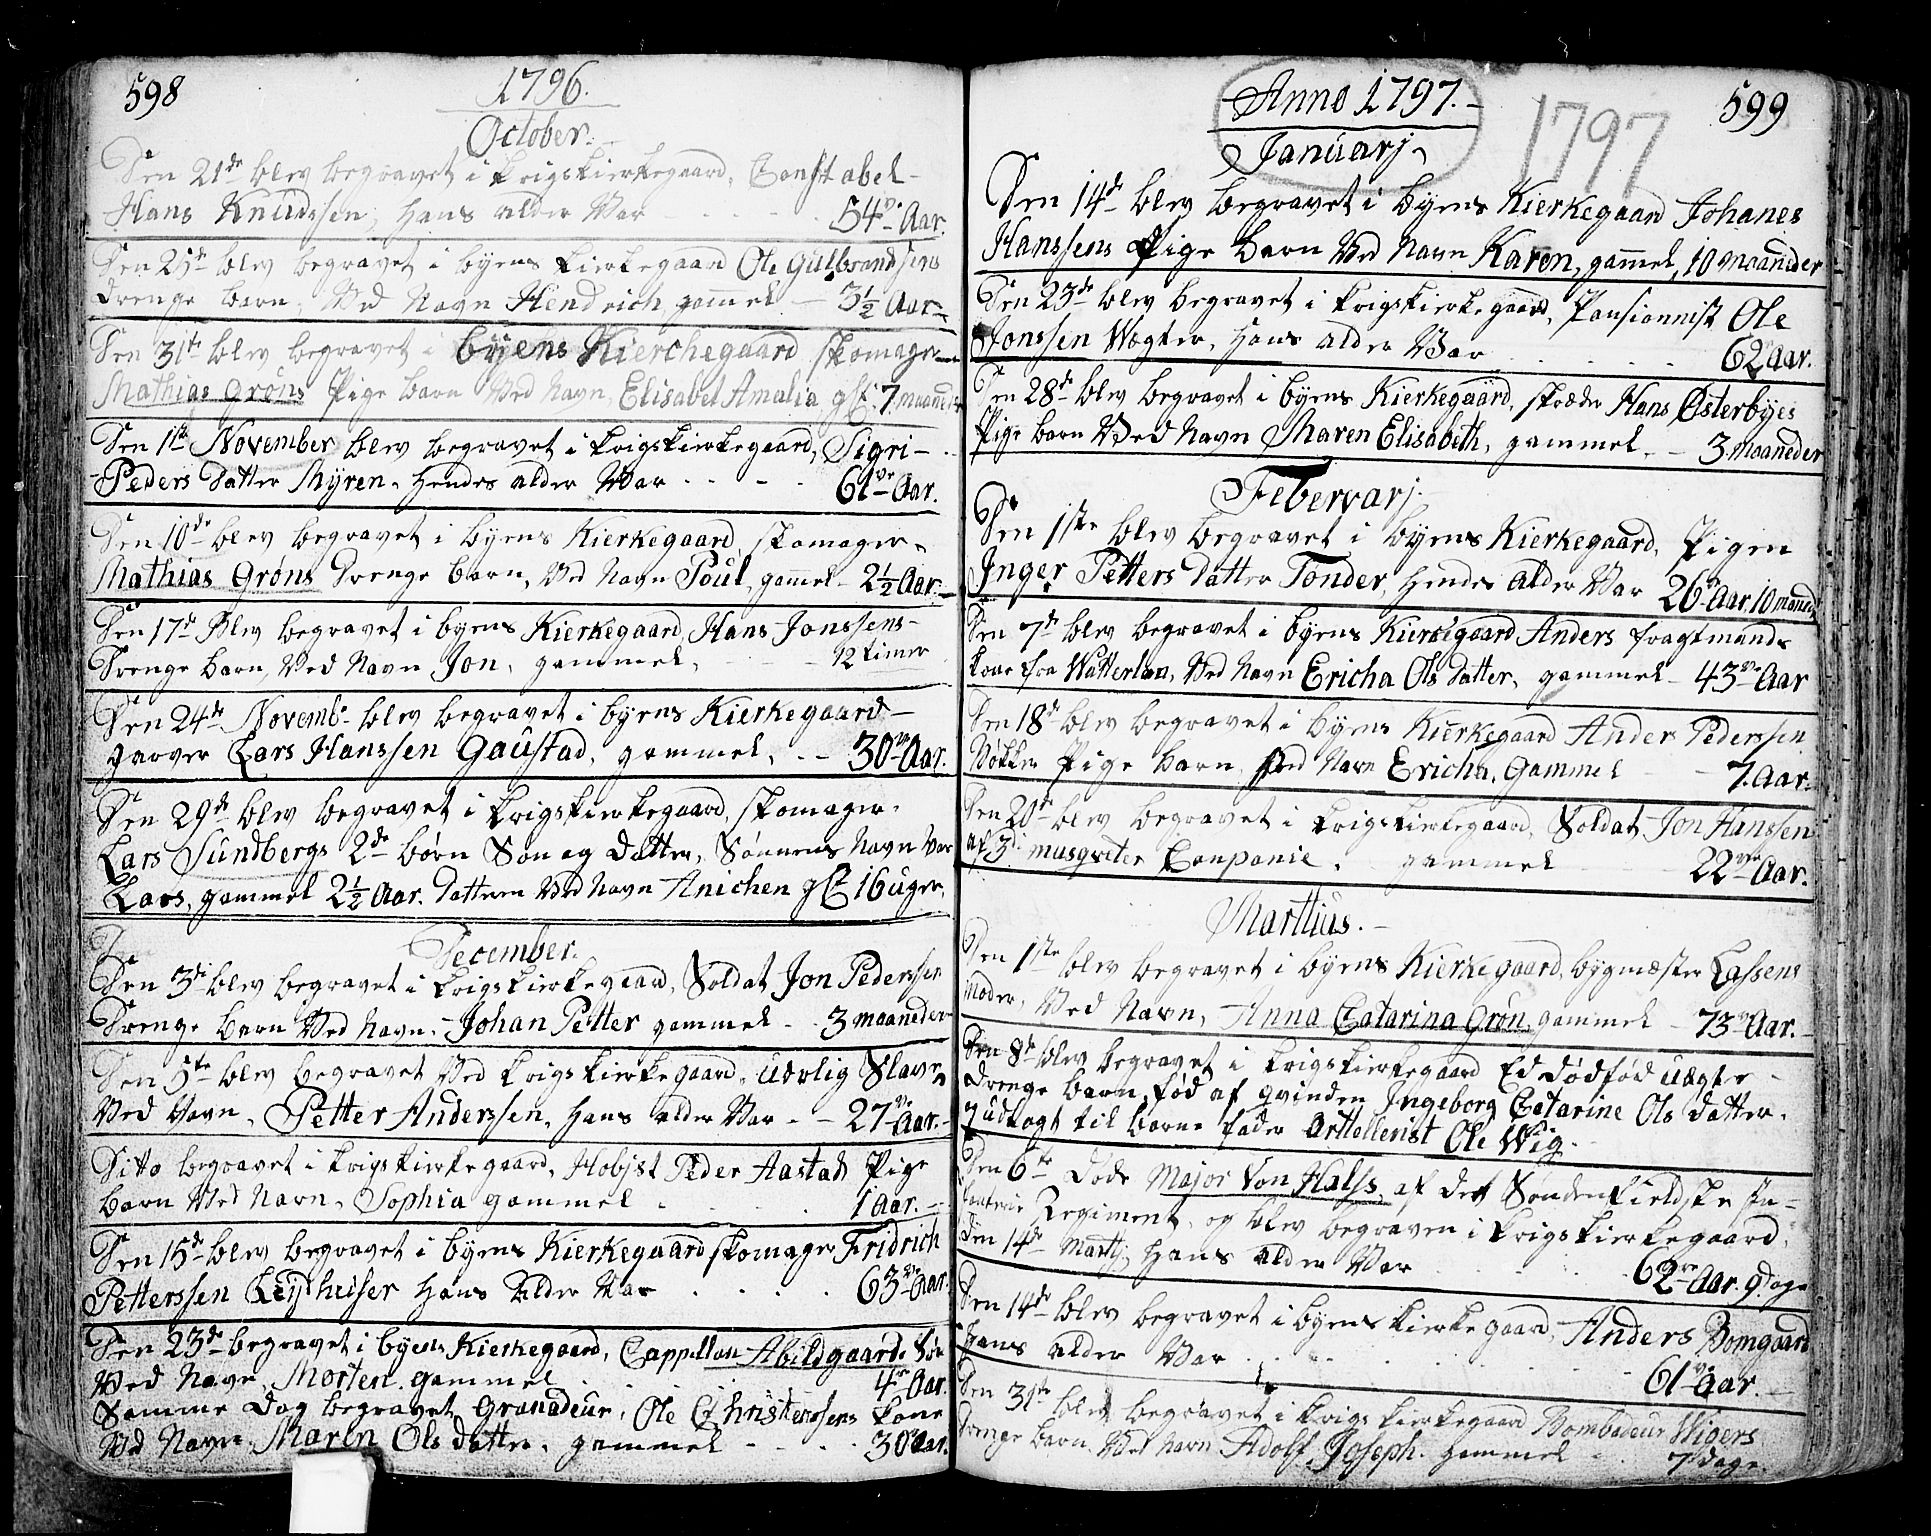 598
1796.
October.
Den 21de blev begravet i Krigskierkegaard, Constabel
Hans Knudssen, hans alder Var - - - 54ve Aar.
Den 25de blev begravet i byens Kierkegaard Ole Gulbrandsens
Drenge barn, Ved Navn Hendrich, gammel - 3½ Aar.
Den 31te blev begravet i byens Kierchegaard skomager
Mathias Grøns Pige barn Ved Navn, Elisabet Amalia gl. 7 maaneder
Den 1ste November blev begravet i Krigskierkegaard, Sigri
Peders Datter Myren, hendes alder Var - - - 61ve Aar.
Den 10de blev begravet i byens Kierkegaard, skomager
Mathias Grøns Drenge barn, Ved Navn Poul, gammel - 2½ Aar.
Den 17de Blev begravet i byens Kierkegaard, Hans Jonssens
Drenge barn, Ved Navn Jon, gammel, - 12 timer
Den 24de Novemb. blev begravet i byens Kierkegaard
garver Lars Hanssen Gaustad, gammel, - - 30ve Aar.
Den 29de blev begravet i Krigskierkegaard, skomager
Lars Sundbergs 2de børn Søn og Datter, Sønnens Navn Var
Lars, gammel 2½ Aar. Datteren Ved Navn Anichen gl. 16 uger.
December.
Den 3di blev begravet i Krigskierkegaard, Soldat Jon Pederssen
Drenge barn Ved Navn, Johan Petter gammel - - 3 maaneder
Den 5te blev begravet Ved Krigskierkegaard, uærlig Slave
Ved Navn, Petter Anderssen, hans alder Var - - 27ve Aar.
Dito begravet i Krigskierkegaard, Hobjst Peder Aastads Pige
barn Ved Navn, Sophia gammel - - - 1 Aar.
Den 15de blev begravet i byens Kierkegaard skomager Fridrich
Petterssen Leytheiser hans alder Var - - - 63ve Aar.
Den 23de begravet i byens Kierkegaard, Cappellan Abildgaards Søn
Ved Navn, Morten gammel - - - 4re Aar.
Samme Dag begravet Granadeur, Ole Christenssens Kone
Ved Navn Maren Ols datter, gammel - - - - 30 Aar.
599
Anno 1797.
1797
Januarj
Den 14de blev begravet i byens Kierkegaard Johanes
Hanssens Pige barn Ved Navn Karen, gammel, 10 maaneder
Den 23de blev begravet i Krigskierkegaard, Pansionnist Ole
Jonssen Wægter, hans alder Var - - - - 62 Aar.
Den 28de blev begravet i byens Kierkegaard, skræder Hans Østerbyes
Pige barn Ved Navn Maren Elisabeth, gammel - - 3 maaneder
Febervarj.
Den 1ste blev begravet i byens Kierkegaard, Pigen
Inger Petters datter Tonder, hendes alder Var 26 Aar. 10 maaned
Den 7de blev begravet i byens Kierkegaard Anders fragtmands
Kone fra Watterlan, Ved Navn Ericha Ols datter, gammel - 43ve Aar
Den 18de blev begravet i byens Kierkegaard Anders Pederssen
Bøkker Pige barn Ved Navn Ericha, Gammel - - 7. Aar.
Den 20de blev begravet i Krigskierkegaard, Soldat Jon Hanssen
af 3di musqviter Companie, gammel 22ve Aar.
Marttius.
Den 1ste blev begravet i byens Kierkegaard, bygmæster Lassens
Moder, Ved Navn, Anna Catarina Grøn, gammel - 73ve Aar.
Den 8de blev begravet i Krigskierkegaard Ed dødfød uægte
drenge barn, fød af qvinden Ingeborg Catarine Ols datter.
udlagt til barne fader Arttellerist Ole Wig.
Den 6te Døde Major Von Halss, af det Søndenfieldske In-
fanterie Regiment, og blev begraven i Krigskierkegaard,
den 14de Marttj, hans alder Var - - - - 62ve Aar. 9 Dage
Den 14de blev begravet i byens Kierkegaard, Anders Bomgaard
hans alder Var - - - - - 61ve Aar.
Den 31te blev begravet i Krigskierkegaard Bombadeur Wigers
Drenge barn, Ved Navn Adolf Joseph. gammel - - 7 dage.